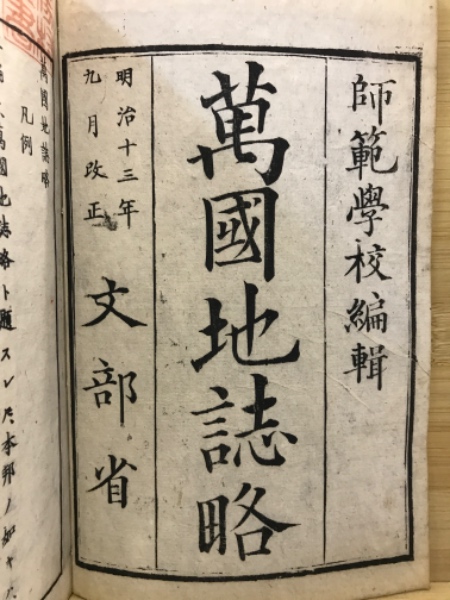 師範學校編輯
萬國地誌略
明治十三年
九月改正
文部省
萬國地誌略
凡例
萬國地誌略ト題スレ𪜈本邦ノ如キハ